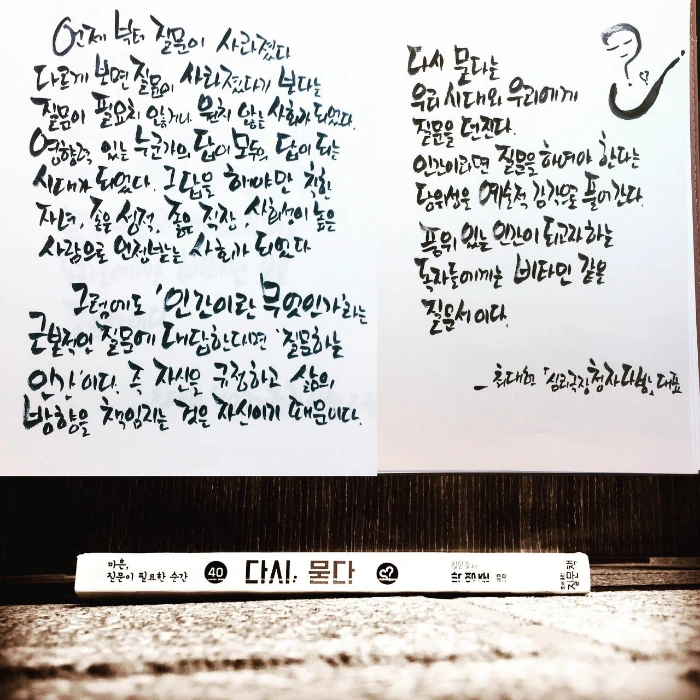 언제 부터 질문이 사라졌다
다르게 보면 질문이 사라졌다기 보다는
질문이 필요치 않거나 원치 않는 사회가 되었다.
영향력 있는 누군가의 답이 모두의 답이 되는
시대가 되었다. 그 답을 해야만 착한
자녀, 좋은 성적, 좋은 직장, 사회성이 높은
사람으로 인정받는 사회가 되었다
그럼에도 '인간이란 무엇인가'하는
근본적인 질문에 대답한다면 '질문하는
인간'이다. 즉 자신을 규정하고 삶의
방향을 책임지는 것은 자신이기 때문이다.
다시 묻다는
우리 시대와 우리에게
질문을 던진다.
인간이라면 질문을 하여야 한다는
당위성을 예술적 감각으로 풀어간다.
품위 있는 인간이 되고자 하는
독자들에게는 비타민 같은
질문서이다.
_ 최대헌 '심리극장 청자다방' 대표
마흔,
질문이 필요한 순간
40
다시, 묻다
질문술사
지음
질문책